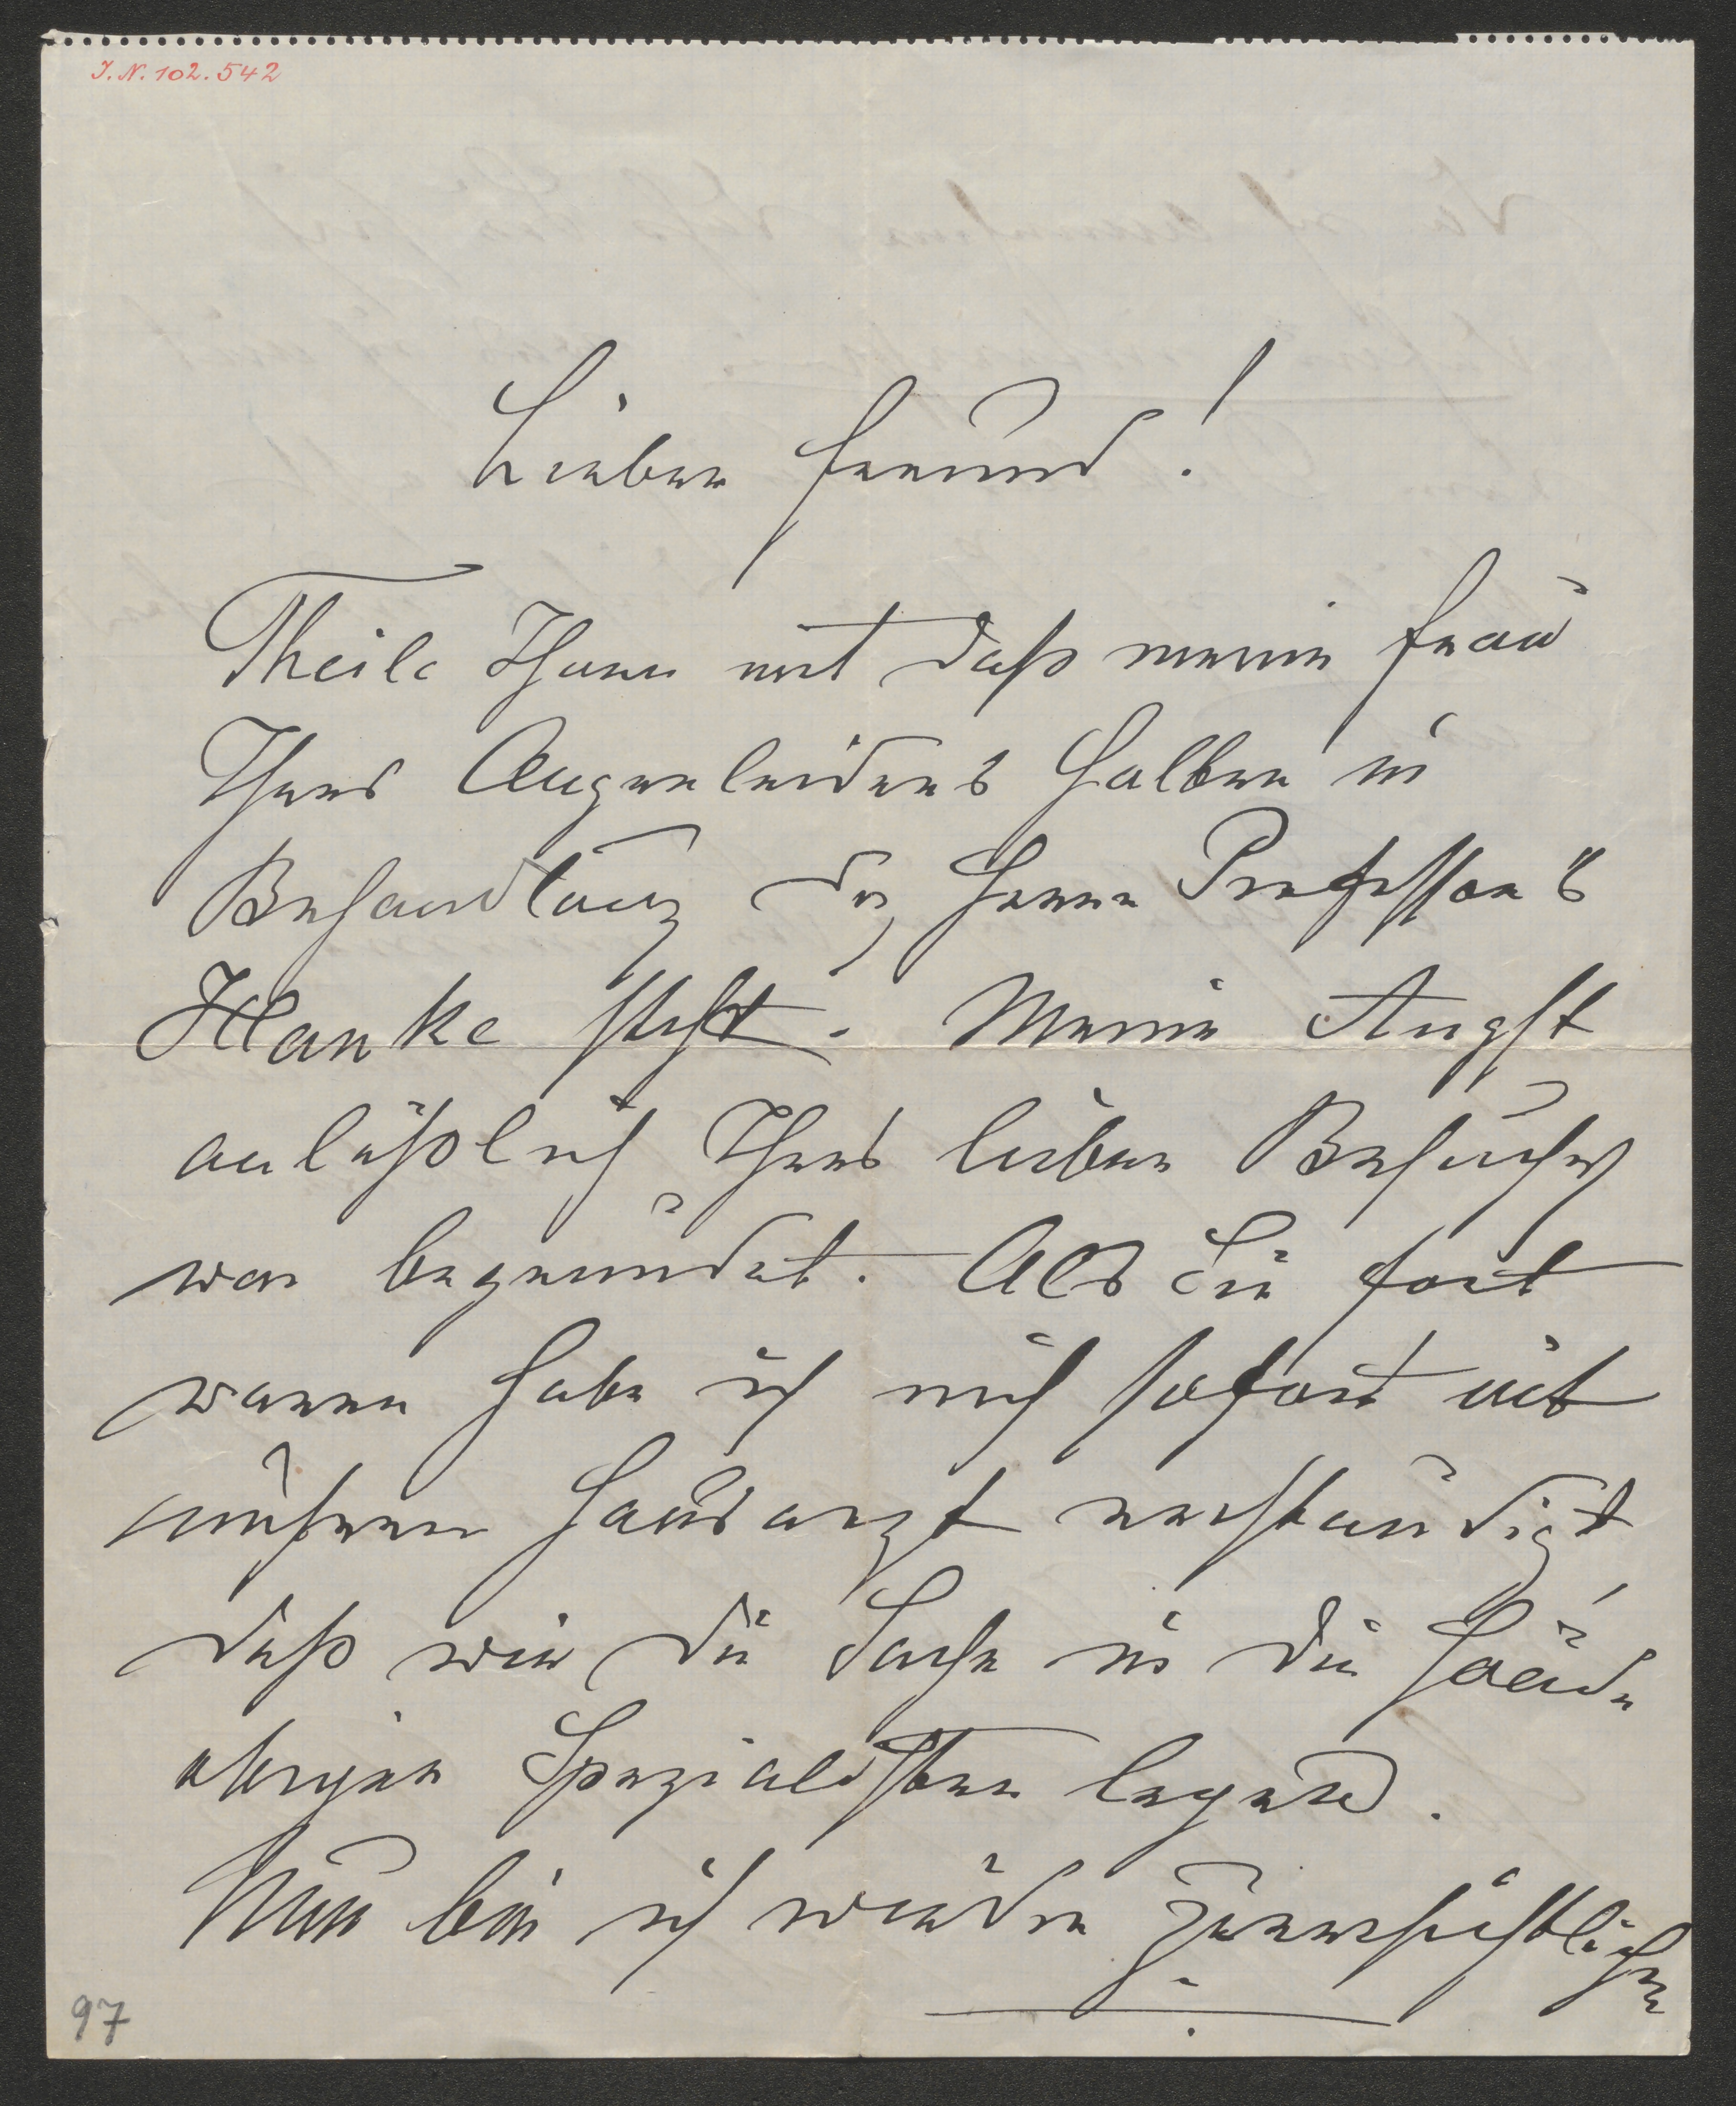 I. N. 102.542
Lieber Freund!
Theile Ihnen mit daß meine Frau
Ihres Augenleidens halber in
Behandlung des Herrn Professor's
Hanke steht. Meine Angst
anläßlich Ihres lieben Besuches
war begründet. Als Sie fort
waren habe ich mich sofort mit
unseren Hausarzt verständigt
daß wir die Sache in die Hände
Spezialisten legen.
Nun bin ich wieder zuversichtlicher
97